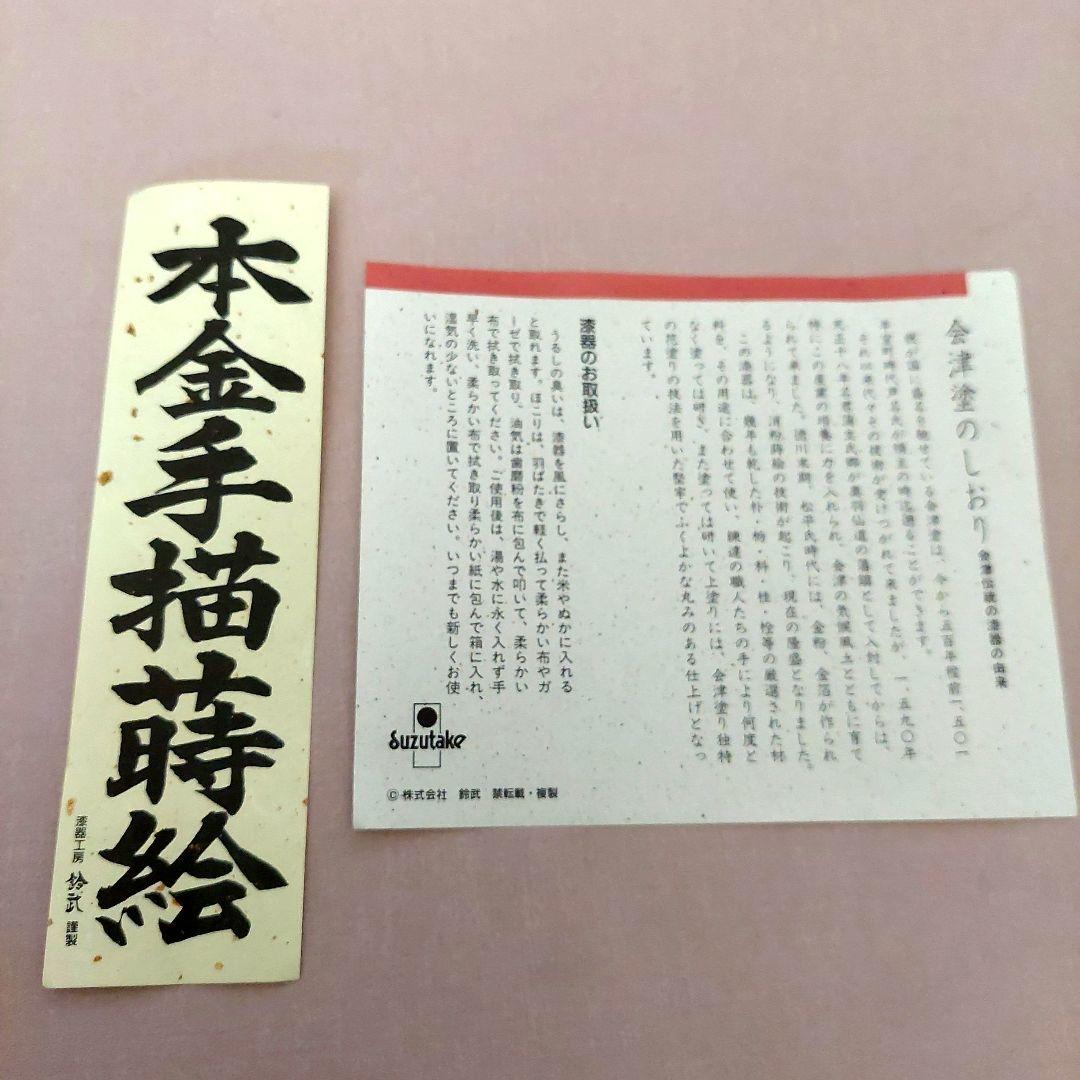 本金手描蒔絵
漆器工房 鈴武 謹製
会津塗のしおり
会津伝統の漆器の由来
我が国に盛名を馳せている会津塗は、今から五百年程前一、五〇一
年室町時代芦名氏が領主の時に遡ることができます。
それ以来代々その技術が受けつがれて来ましたが、一、五九〇年
天正十八年名君蒲生氏郷が奥羽仙道の藩鎮として入封してからは、
特にこの産業の培養に力を入れられ、会津の気候風土とともに育て
られて来ました。徳川末期、松平氏時代には、金粉、金箔が作られ
るようになり、消粉蒔絵の技術が起こり、現在の隆盛となりました。
この漆器は、幾年も乾した朴・栃・科・桂・栓等の厳選された材
料を、その用途に合わせて使い、練達の職人たちの手により何度と
なく塗っては研ぎ、また塗っては研いで上塗りには、会津塗り独特
の花塗りの技法を用いた堅牢でふくよかな丸みのある仕上げとなっ
ています。
漆器のお取扱い
うるしの臭いは、漆器を風にさらし、また米やぬかに入れる
と取れます。ほこりは、羽ばたきで軽く払って柔らかい布やガ
ーゼで拭き取り、油気は歯磨粉を布に包んで叩いて、柔らかい
布で拭き取ってください。ご使用後は、湯や水に永く入れず手
早く洗い、柔らかい布で拭き取り柔らかい紙に包んで箱に入れ、
湿気の少ないところに置いてください。いつまでも新しくお使
いになれます。
Suzutake
Ⓒ株式会社 鈴武 禁転載・複製